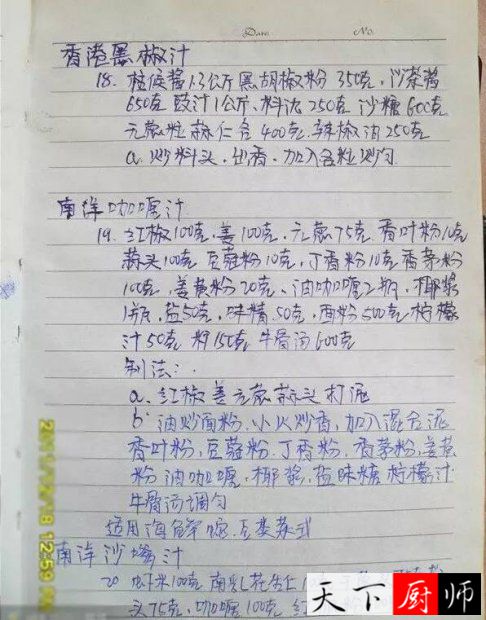 Date No.
香港黑椒汁
18. 柱候酱1.3公斤 黑胡椒粉 350克、沙茶酱
650克 豉汁1公斤、料酒 250克 沙糖 600克
元葱粒 蒜仁 各400克、辣椒油 250克
a. 炒料头、出香、加入各粒炒匀
南洋咖喱汁
19. 红椒100克、姜100克、元葱75克 香叶粉10克
蒜头100克 豆蔻粉10克、丁香粉10克 香茅粉
100克、姜黄粉20克、油咖喱2瓶、椰浆
1瓶、盐50克、味精50克、面粉500克 柠檬
汁50克 料150克 牛骨汤600克
制法：
a. 红椒 姜 元葱 蒜头 打泥
b. 油炒面粉、小火炒香、加入混合泥
香叶粉、豆蔻粉、丁香粉、香茅粉、姜黄
粉 油咖喱、椰浆、盐味精 柠檬汁
牛骨汤调匀
适用海鲜 菜式
南洋沙嗲汁
20 虾米100克 南乳 花生仁
头75克、咖喱100克 红
天下厨师
12:59 PM